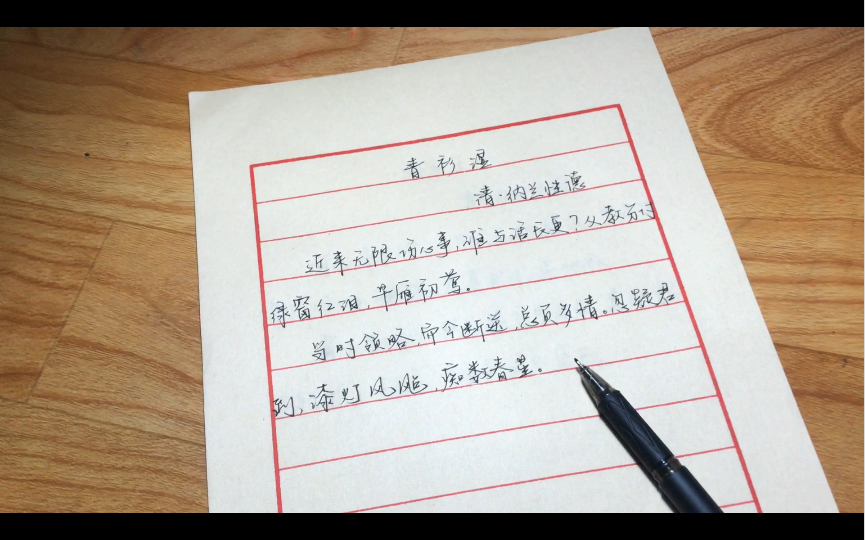 青衫湿
清·纳兰性德
近来无限伤心事,谁与话长更?从教分付
绿窗红泪,早雁初莺。
当时领略,而今断送,总负多情。忽疑君
到,漆灯风飐,痴数春星。